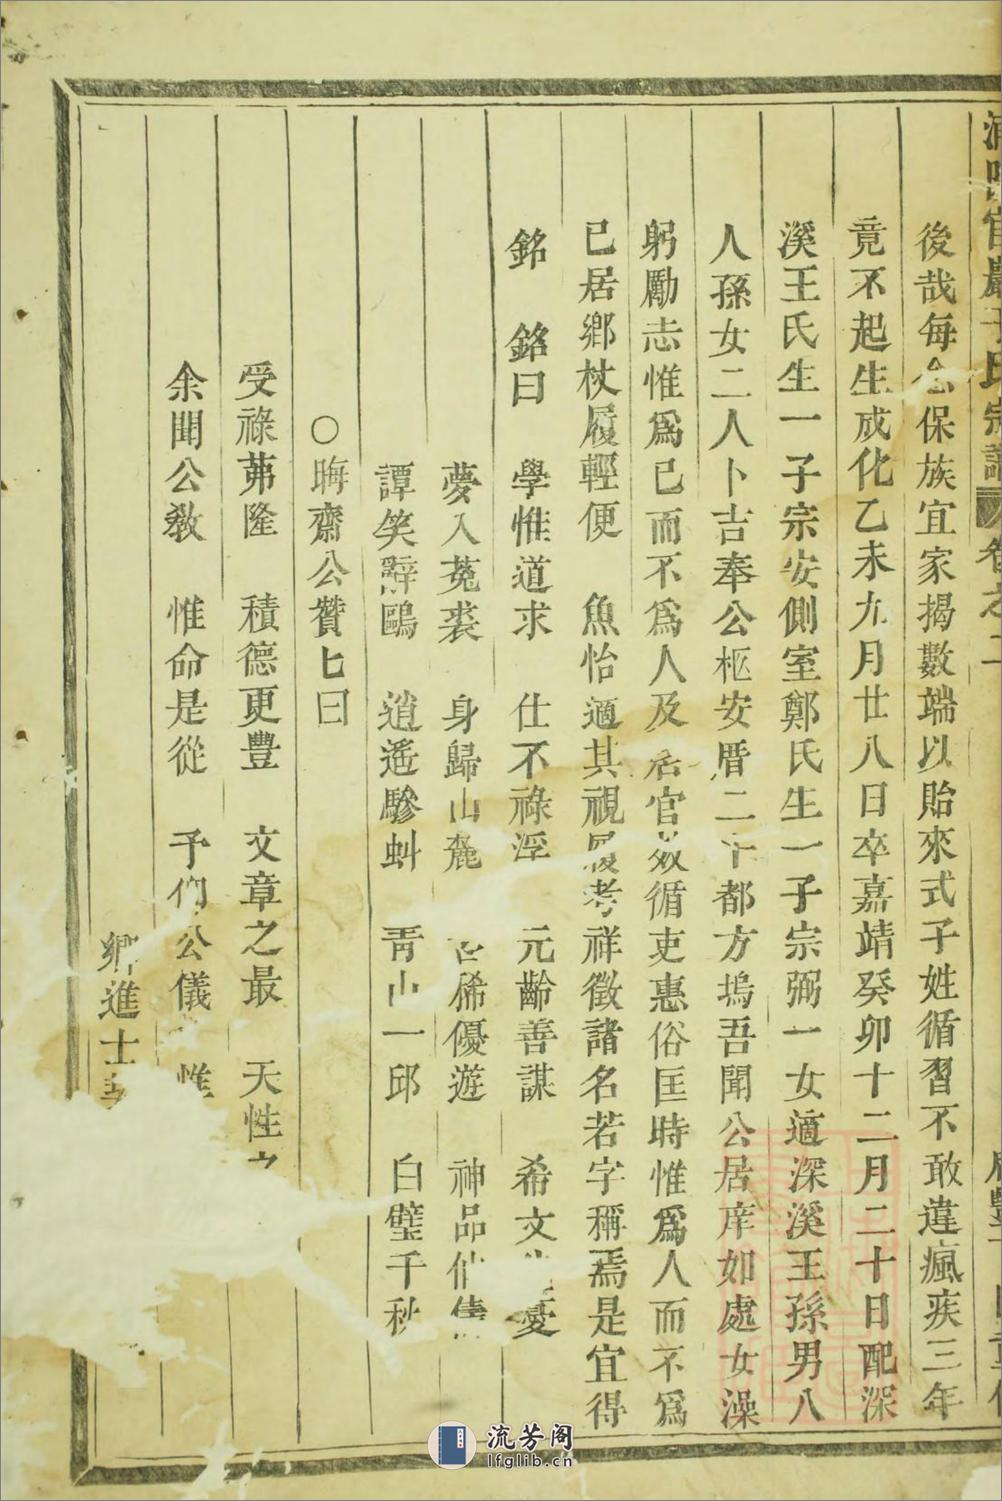 氏宗譜 卷之二
後哉每念保族宜家揭數端以貽來式子姓循習不敢違瘋疾三年
竟不起生成化乙未九月廿八日卒嘉靖癸卯十二月二十日配深
溪王氏生一子宗安側室鄭氏生一子宗弼一女適深溪王孫男八
人孫女二人卜吉奉公柩安厝二十都方塢吾聞公居庠如處女澡
躬勵志惟爲已而不爲人及居官效循吏惠俗匡時惟爲人而不爲
已居鄉杖履輕便 魚怡適其視履考祥徵諸名若字稱焉是宜得
銘 銘曰 學惟道求 仕不祿浮 元齡善謀 希文 憂
夢入菟裘 身歸山麓 古稀優遊 神品仙儔
譚笑辭鷗 逍遙驂虯 靑山一邱 白璧千秋
○晦齋公贊匕曰
受祿茀隆 積德更豐 文章之最 天性之
余聞公敎 惟命是從 予 公儀 惟
鄉進士
流芳阁
lfglib.cn